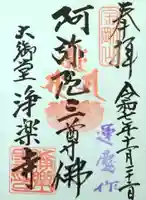 奉拝
令和七年十一月二十三日
運慶作
阿弥陀三尊佛
大御堂
浄楽寺